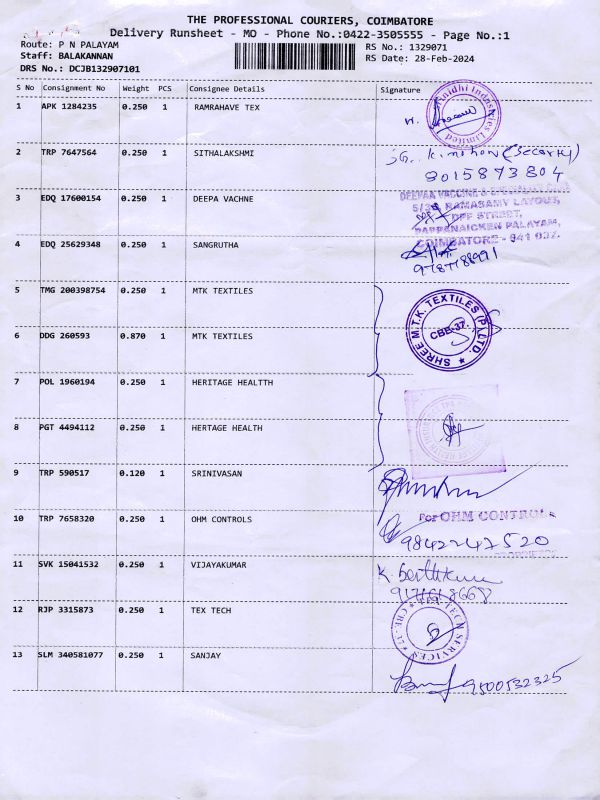 THE PROFESSIONAL COURIERS, COIMBATORE
Delivery Runsheet - MO - Phone No.:0422-3505555 - Page No.:1
Route: P N PALAYAM RS No.: 1329071
Staff: BALAKANNAN RS Date: 28-Feb-2024
DRS No.: DCJB132907101
S No Consignment No Weight PCS Consignee Details Signature
1 APK 1284235 0.250 1 RAMRAHAVE TEX
2 TRP 7647564 0.250 1 SITHALAKSHMI (Security)
8015873804
3 EDQ 17600154 0.250 1 DEEPA VACHNE
DEEPAA VACCINE &
5/3 RAMASAMY LAYOUT,
DPF STREET,
PAPPANAICKEN PALAYAM,
COIMBATORE - 641 037.
4 EDQ 25629348 0.250 1 SANGRUTHA
9787788991
5 TMG 200398754 0.250 1 MTK TEXTILES
SHREE M.T.K. TEXTILES (P) LTD.
CBE-37.
6 DDG 260593 0.870 1 MTK TEXTILES
7 POL 1960194 0.250 1 HERITAGE HEALTTH
8 PGT 4494112 0.250 1 HERTAGE HEALTH
9 TRP 590517 0.120 1 SRINIVASAN
10 TRP 7658320 0.250 1 OHM CONTROLS
For OHM CONTROLS
9842247520
11 SVK 15041532 0.250 1 VIJAYAKUMAR
12 RJP 3315873 0.250 1 TEX TECH
TEX TECH SERVICES
CBE-37
13 SLM 340581077 0.250 1 SANJAY
9500532325